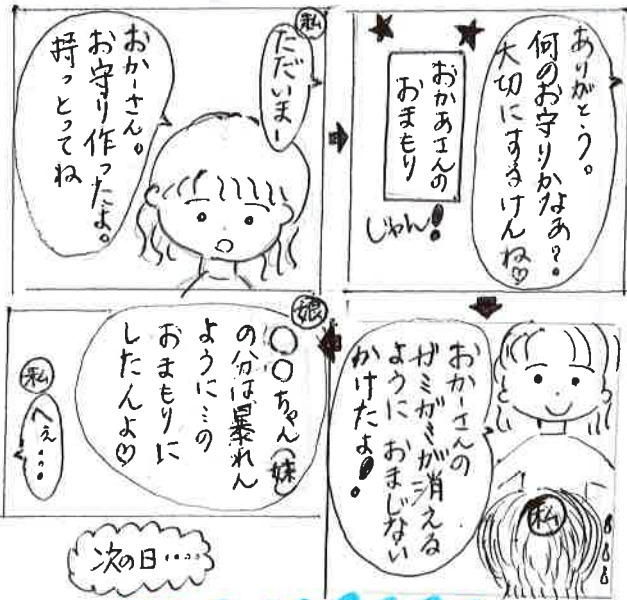 私
ただいまー
おかーさん。
お守り作ったよ。
持っとってね
ありがとう。
何のお守りかなぁ?。
大切にするけんね♡
おかあさんの
おまもり
じゃん!
おかーさんの
ガミガミが消える
ように おまじない
かけたよ!。
私
娘
〇〇ちゃん(妹)
の分は暴れん
ようにこの
おまもりに
したんよ♡
私
へぇ...
次の日.....